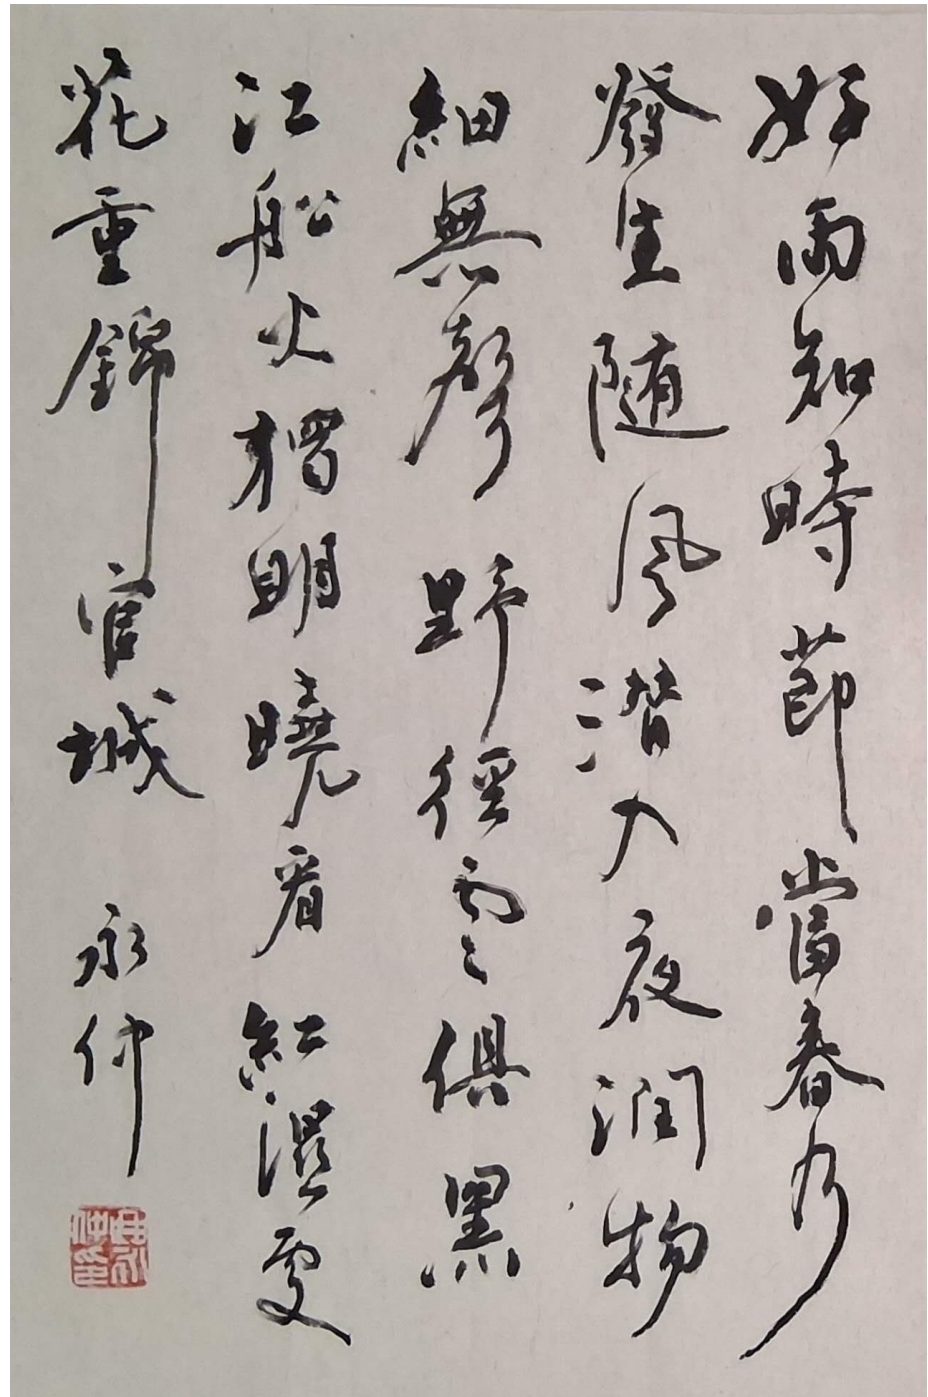 好雨知時節當春乃
發生随風潜入夜润物
細無聲野徑雲俱黑
江船火獨明曉看紅濕處
花重錦官城 永仲
永仲印